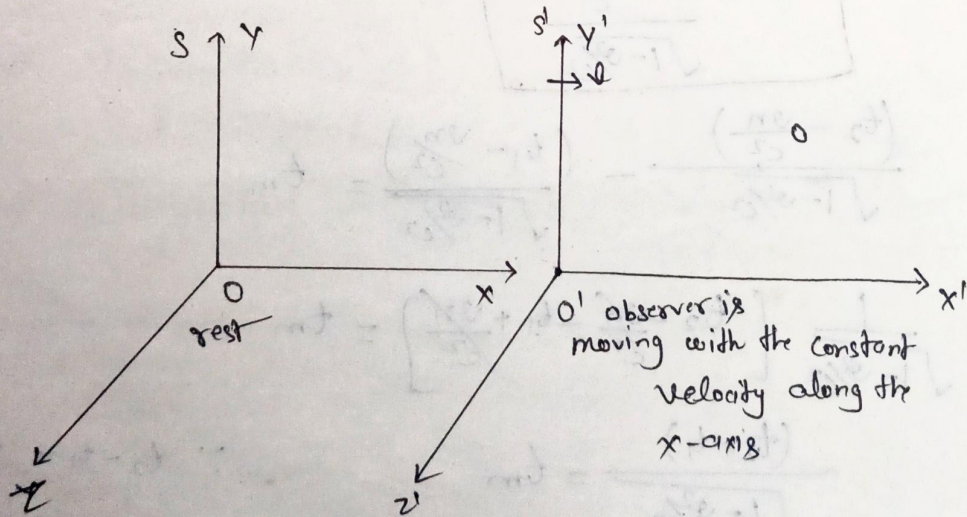 S Y
S' Y'
v
O
X
O
rest
Z
X'
O' observer is
moving with the constant
velocity along the
x-axis
Z'